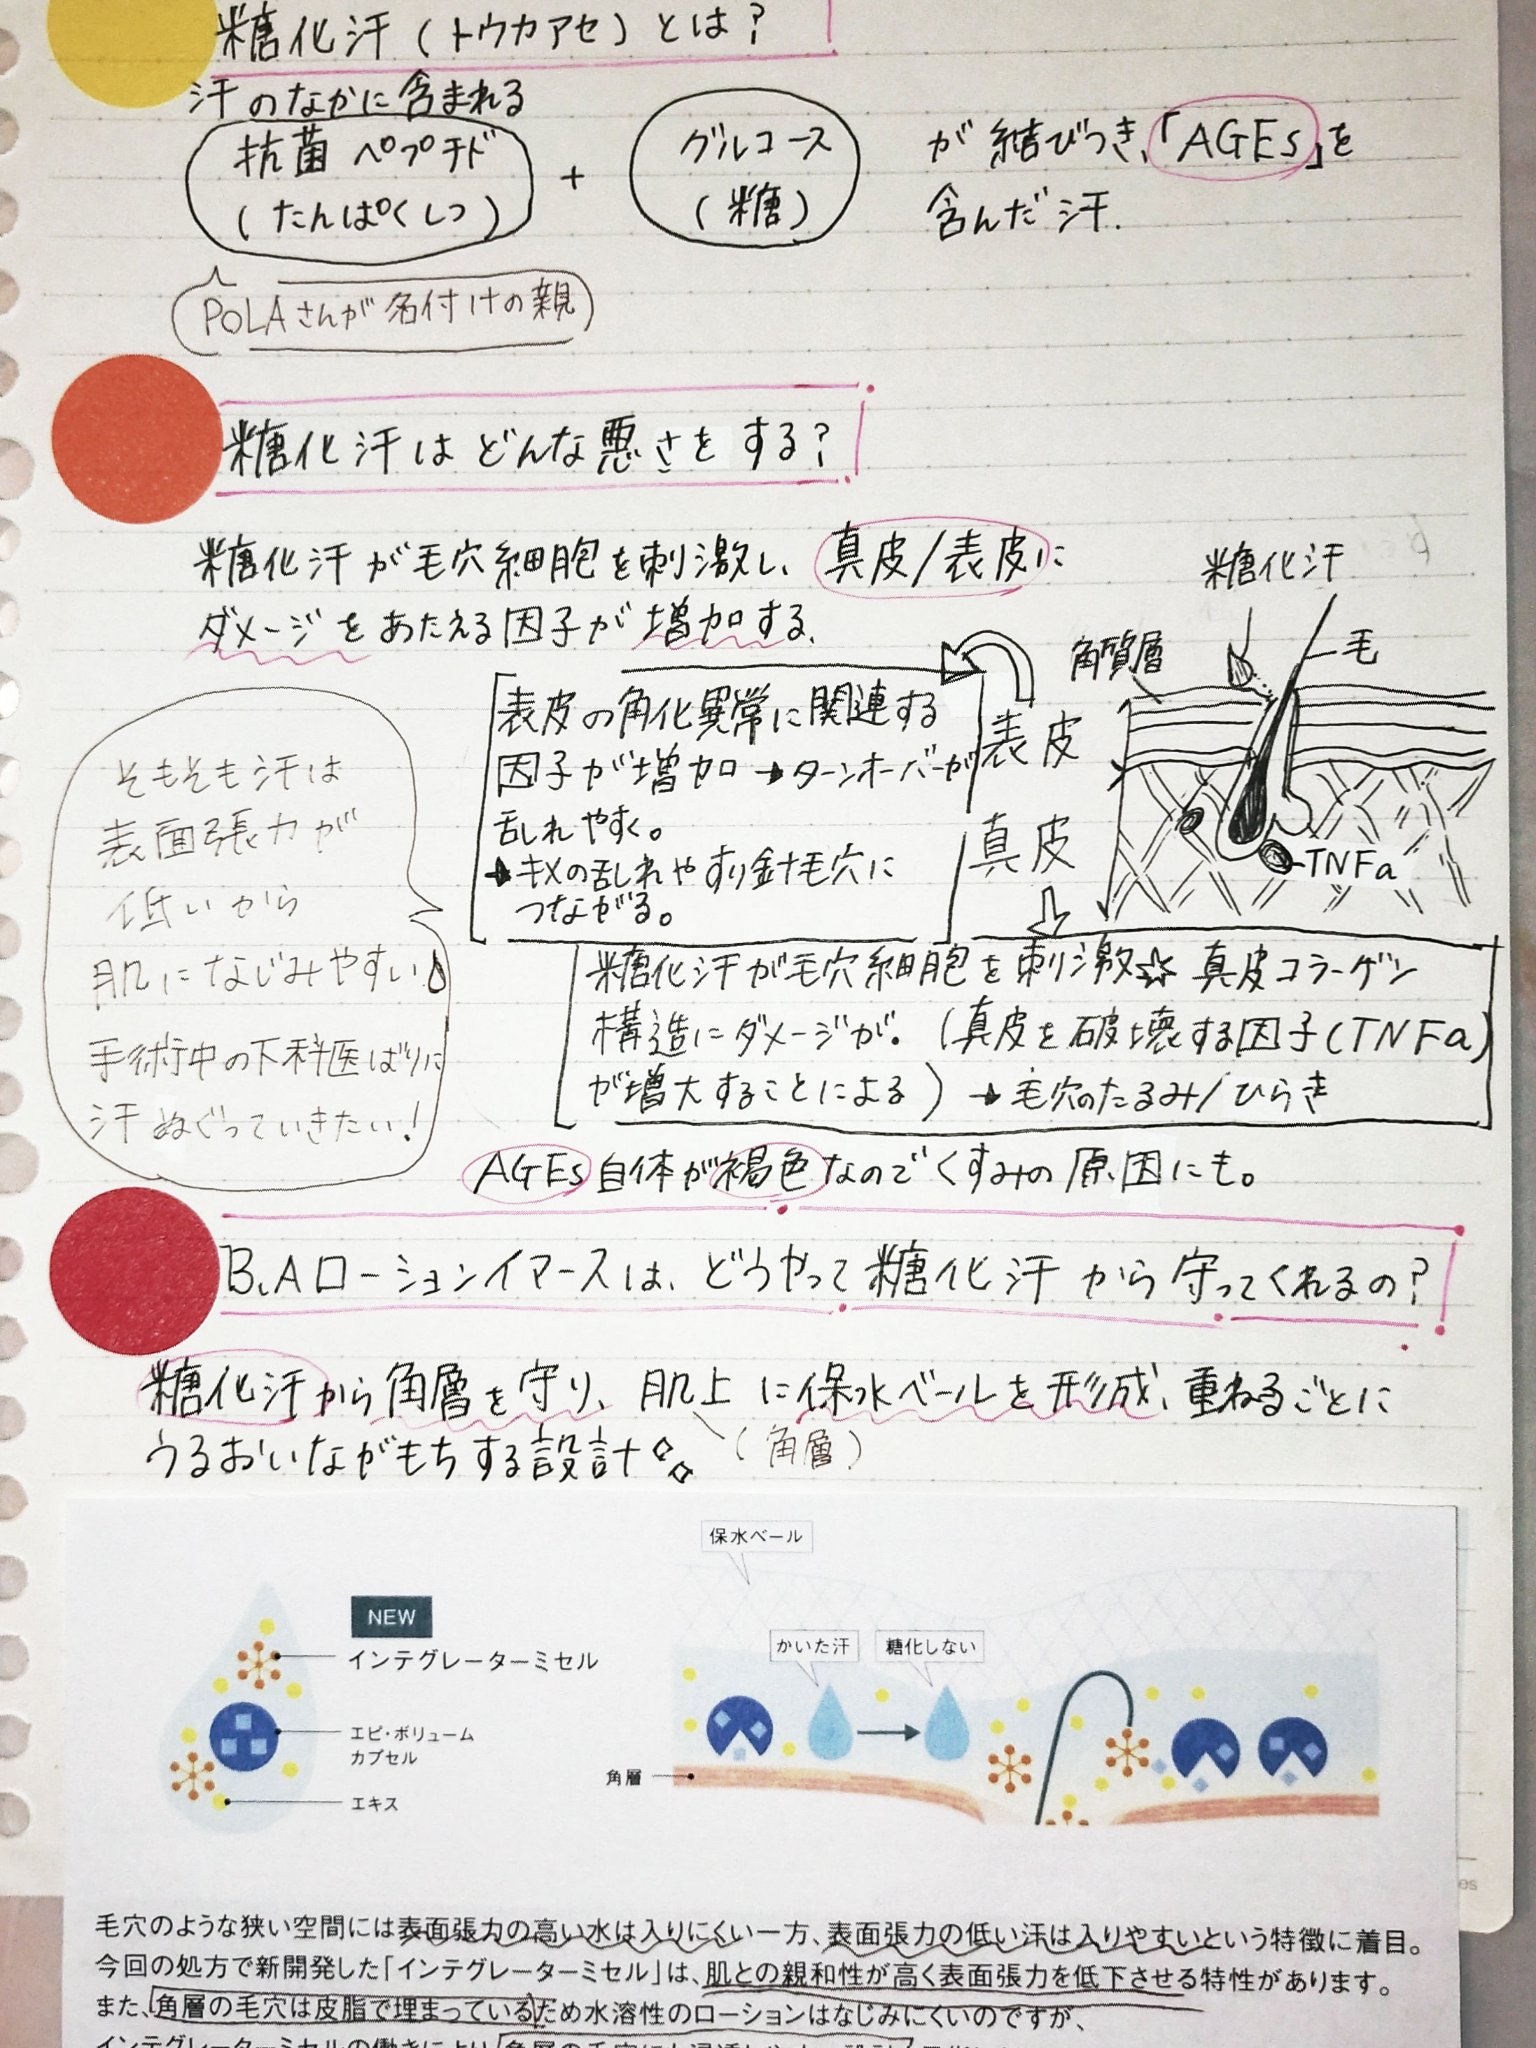 糖化汗(トウカアセ)とは?
汗のなかに含まれる
抗菌ペプチド
(たんぱくしつ)
+
グルコース
(糖)
が結びつき、「AGEs」を
含んだ汗.
POLAさんが名付けの親
糖化汗はどんな悪さをする?
糖化汗が毛穴細胞を刺激し、真皮/表皮に
ダメージをあたえる因子が増加する、
糖化汗
毛
角質層
表皮
真皮
TNFa
表皮の角化異常に関連する
因子が増加→ターンオーバーが
乱れやすく。
→キメの乱れやすり鉢毛穴に
つながる。
そもそも汗は
表面張力が
低いから
肌になじみやすい
手術中の下科医ばりに
汗ぬぐっていきたい!
糖化汗が毛穴細胞を刺激☆真皮コラーゲン
構造にダメージが。(真皮を破壊する因子(TNFa)
が増大することによる)→毛穴のたるみ/ひらき
AGEs自体が褐色なのでくすみの原因にも。
B.Aローションイマースは、どうやって糖化汗から守ってくれるの?
糖化汗から角層を守り、肌上に保水ベールを形成、重ねるごとに
うるおいながもちする設計
(角層)
保水ベール
NEW
インテグレーターミセル
かいた汗
糖化しない
エピ・ボリューム
カプセル
角層
エキス
毛穴のような狭い空間には表面張力の高い水は入りにくい一方、表面張力の低い汗は入りやすいという特徴に着目。
今回の処方で新開発した「インテグレーターミセル」は、肌との親和性が高く表面張力を低下させる特性があります。
また、角層の毛穴は皮脂で埋まっているため水溶性のローションはなじみにくいのですが、
インテグレーターミセルの働きにより